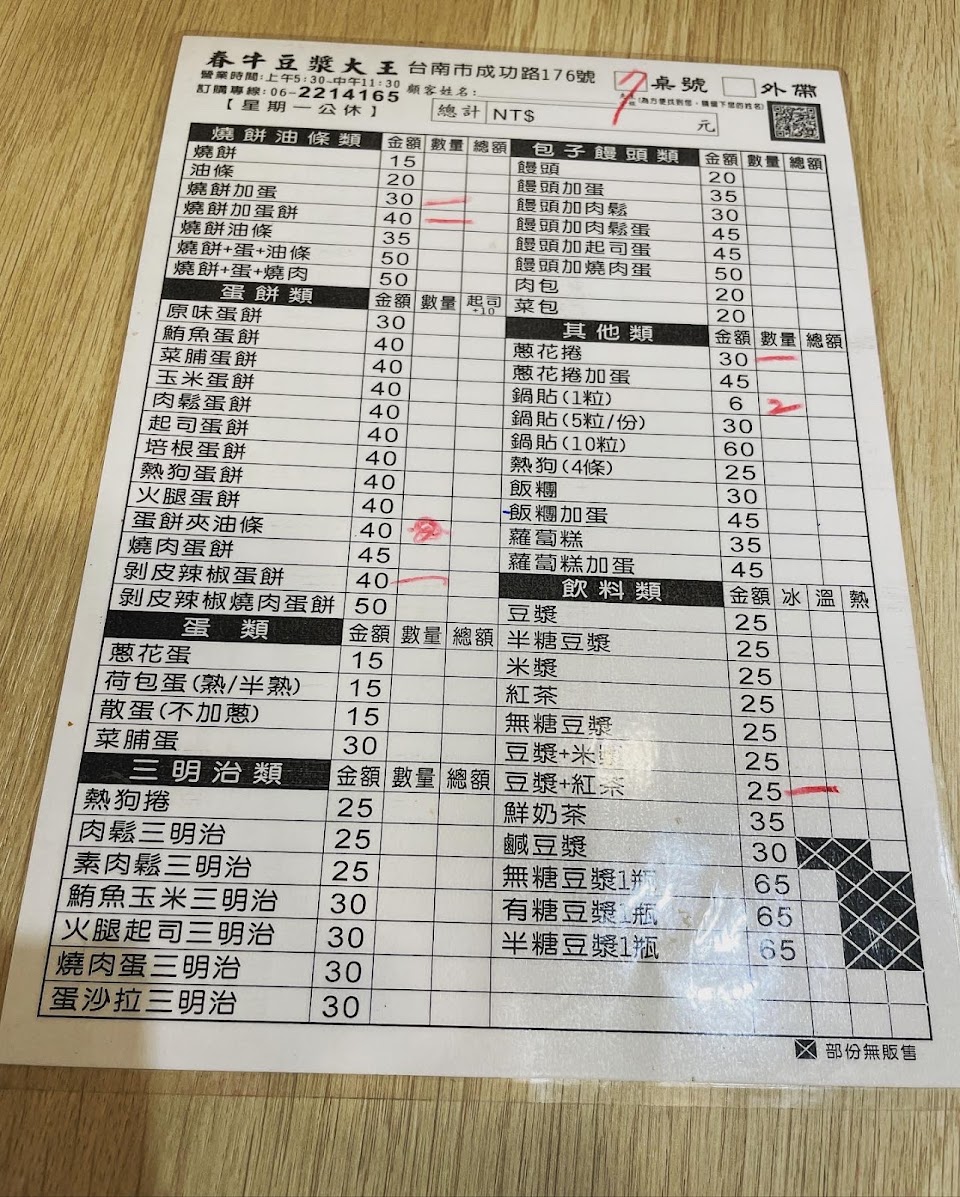 春牛豆漿大王 台南市成功路176號 7 桌號 外帶
營業時間:上午5:30~中午11:30 顧客姓名: (為方便找到您,請留下您的姓名)
訂購專線:06-2214165
【星期一公休】 總計 NT$ 元
燒餅油條類 金額 數量 總額
燒餅 15
油條 20
燒餅加蛋 30 一
燒餅加蛋餅 40 一
燒餅油條 35
燒餅+蛋+油條 50
燒餅+蛋+燒肉 50
蛋餅類 金額 數量 起司+10
原味蛋餅 30
鮪魚蛋餅 40
菜脯蛋餅 40
玉米蛋餅 40
肉鬆蛋餅 40
起司蛋餅 40
培根蛋餅 40
熱狗蛋餅 40
火腿蛋餅 40
蛋餅夾油條 40
燒肉蛋餅 45
剝皮辣椒蛋餅 40 一
剝皮辣椒燒肉蛋餅 50
蛋類 金額 數量 總額
蔥花蛋 15
荷包蛋(熟/半熟) 15
散蛋(不加蔥) 15
菜脯蛋 30
三明治類 金額 數量 總額
熱狗捲 25
肉鬆三明治 25
素肉鬆三明治 25
鮪魚玉米三明治 30
火腿起司三明治 30
燒肉蛋三明治 30
蛋沙拉三明治 30
包子饅頭類 金額 數量 總額
饅頭 20
饅頭加蛋 35
饅頭加肉鬆 30
饅頭加肉鬆蛋 45
饅頭加起司蛋 45
饅頭加燒肉蛋 50
肉包 20
菜包 20
其他類 金額 數量 總額
蔥花捲 30 一
蔥花捲加蛋 45
鍋貼(1粒) 6 2
鍋貼(5粒/份) 30
鍋貼(10粒) 60
熱狗(4條) 25
飯糰 30
飯糰加蛋 45
蘿蔔糕 35
蘿蔔糕加蛋 45
飲料類 金額 冰 溫 熱
豆漿 25
半糖豆漿 25
米漿 25
紅茶 25
無糖豆漿 25
豆漿+米漿 25
豆漿+紅茶 25 一
鮮奶茶 35
鹹豆漿 30
無糖豆漿1瓶 65
有糖豆漿1瓶 65
半糖豆漿1瓶 65
部份無販售